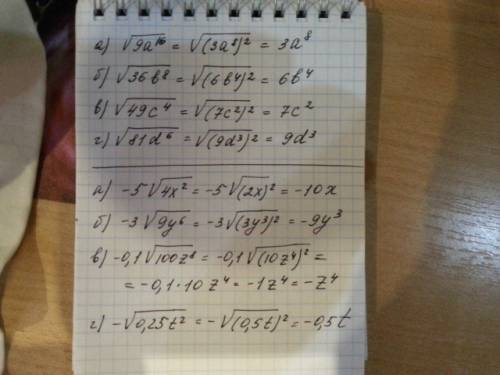 а) √9a¹⁶ = √(3a⁸)² = 3a⁸
б) √36b⁸ = √(6b⁴)² = 6b⁴
в) √49c⁴ = √(7c²)² = 7c²
г) √81d⁶ = √(9d³)² = 9d³
а) -5√4x² = -5√(2x)² = -10x
б) -3√9y⁶ = -3√(3y³)² = -9y³
в) -0,1√100z⁸ = -0,1√(10z⁴)² =
= -0,1·10z⁴ = -1z⁴ = -z⁴
г) -√0,25t² = -√(0,5t)² = -0,5t